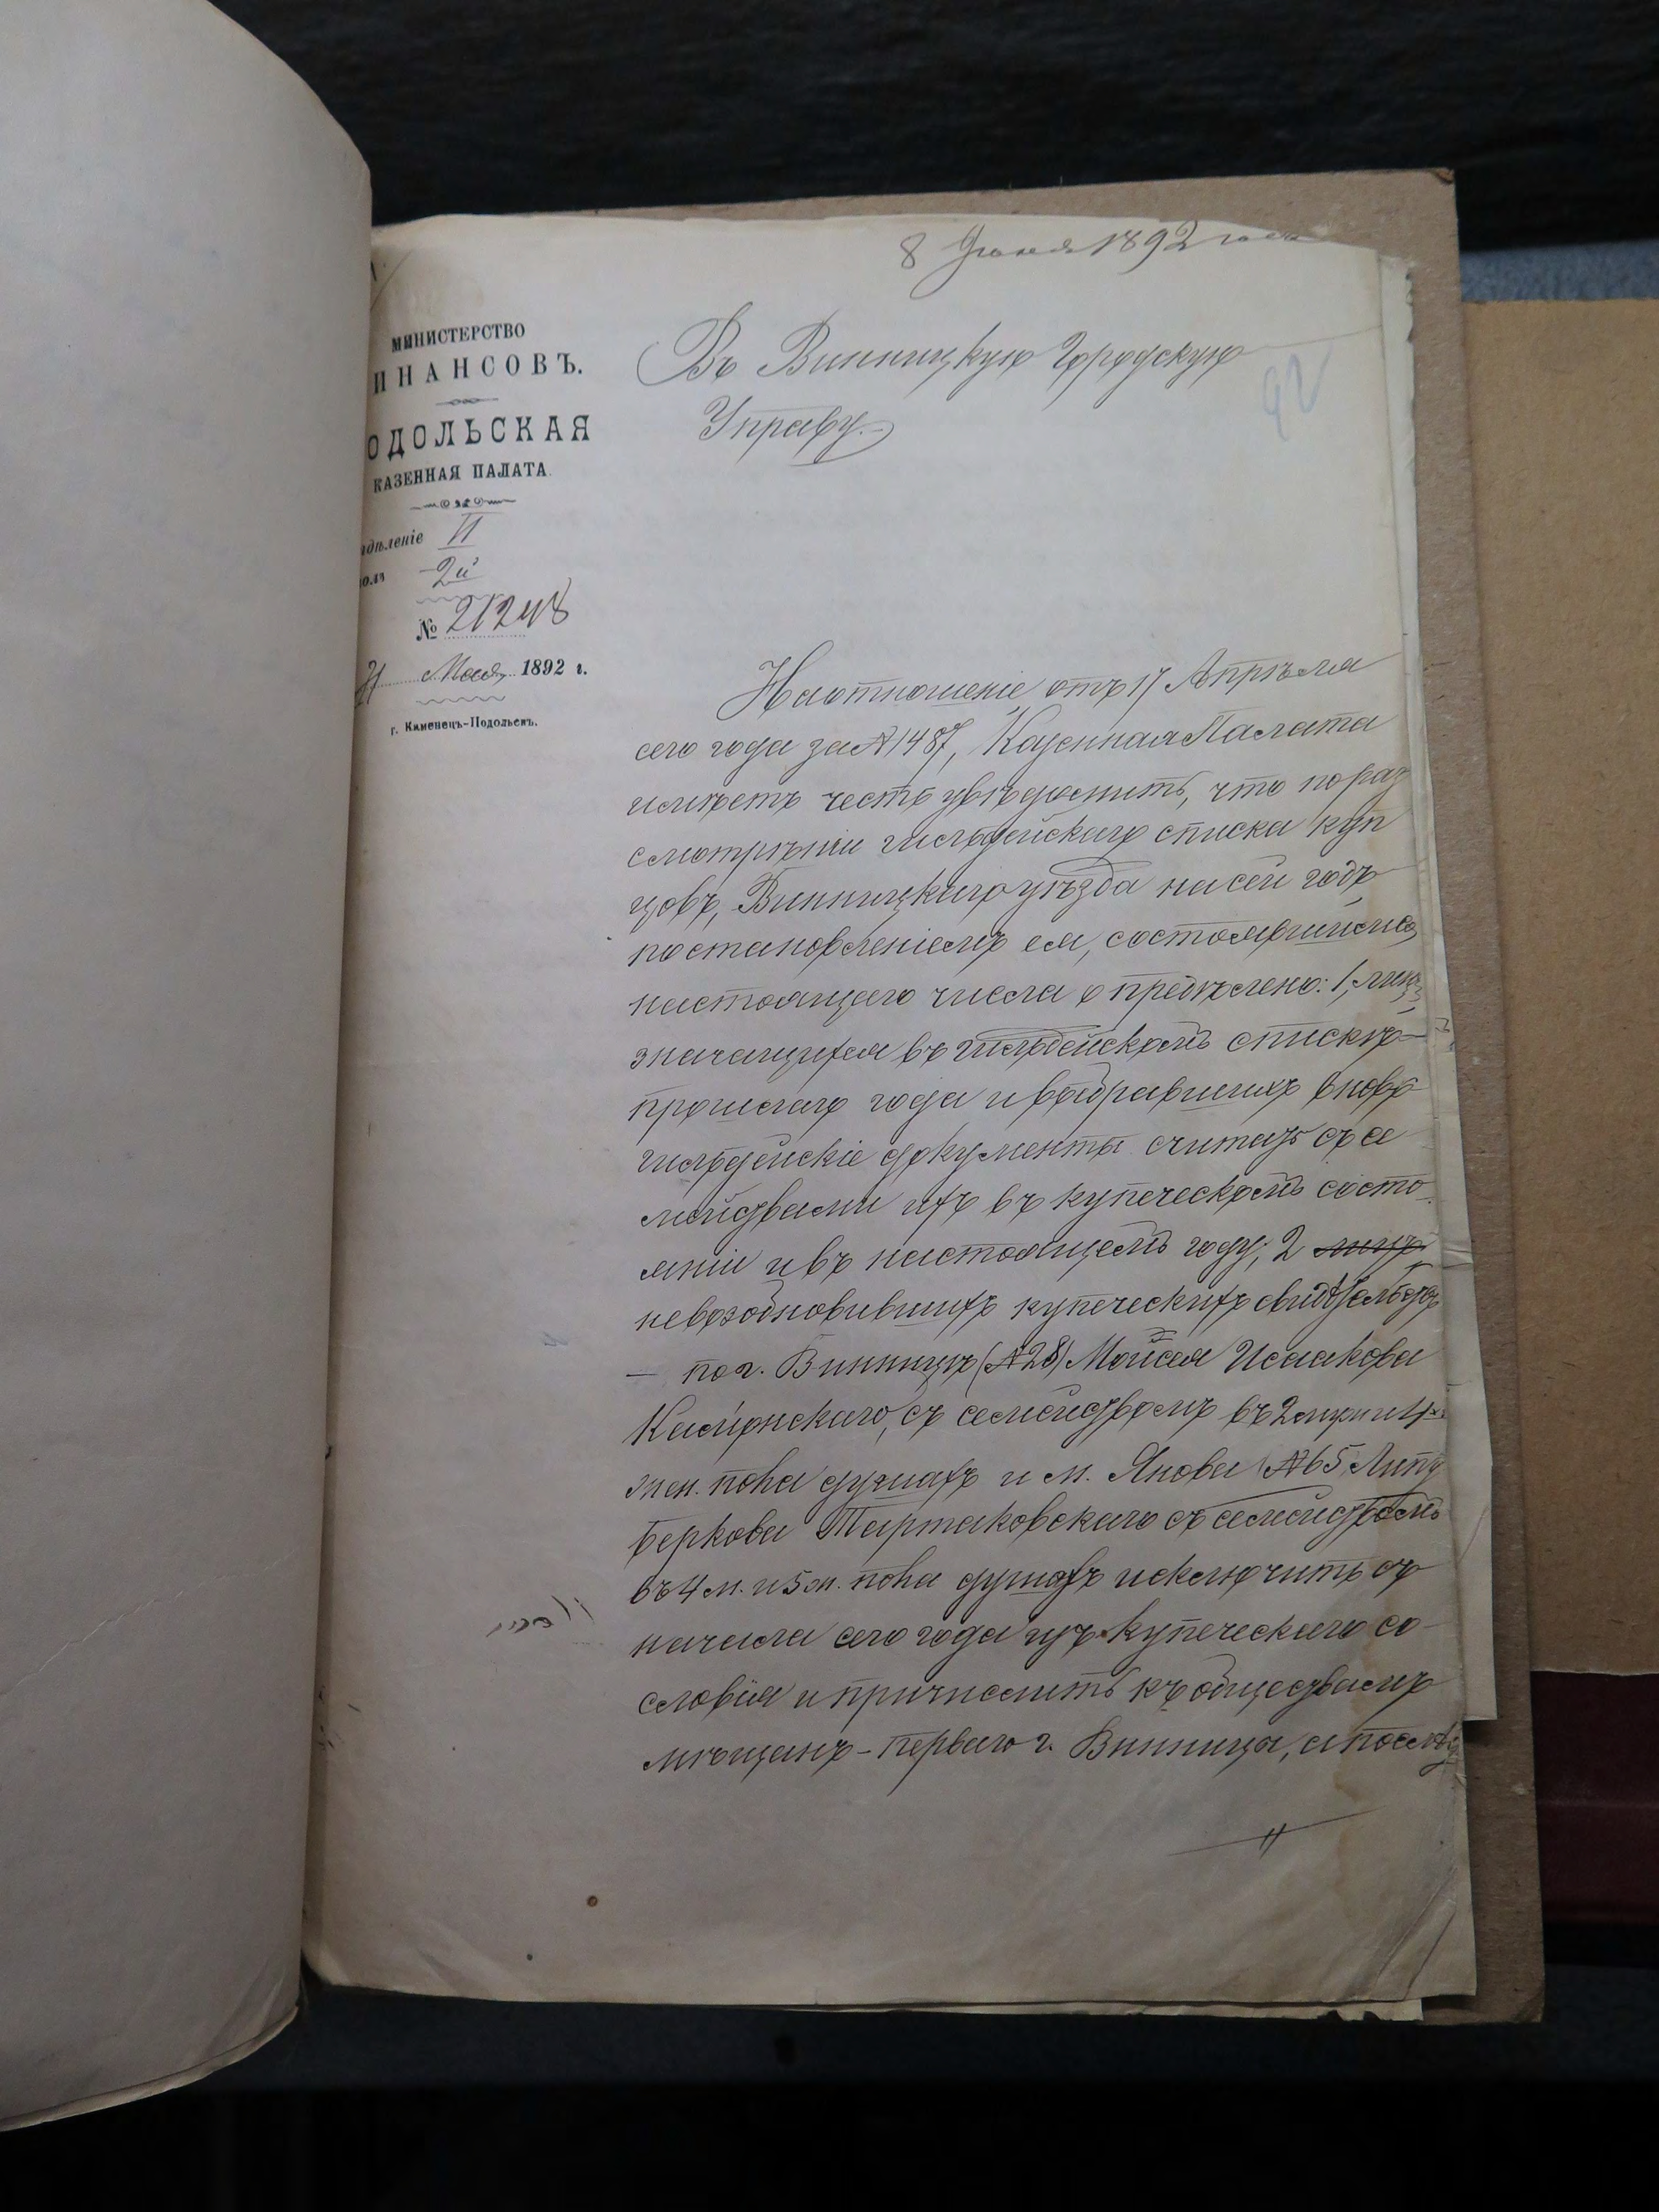 8 Июня 1892 года
МИНИСТЕРСТВО
ИНАНСОВЪ.
ОДОЛЬСКАЯ
КАЗЕННАЯ ПАЛАТА
дѣленіе II
олъ 2й
№ 21248
31 Мая 1892 г.
г. Каменецъ-Подольскъ.
Въ Винницкую Городскую
Управу.
92
На отношеніе отъ 17 Апрѣля
сего года за № 1487, Казенная Палата
имѣетъ честь увѣдомить, что по раз
смотрѣніи гильдейскаго списка куп
цовъ, Винницкаго уѣзда на сей годъ
постановленіемъ ея, состоявшимся
настоящаго числа опредѣлено: 1, лицъ,
значащихся въ гильдейскомъ спискѣ
прошлаго года и выбравшихъ вновь
гильдейскіе документы считать съ се
мействами ихъ въ купеческомъ состо
яніи и въ настоящемъ году; 2 лицъ
невозобновившихъ купеческихъ свидѣтельствъ
— по г. Винницѣ (№ 28) Мойсея Исаакова
съ семействомъ въ 2 муж и 4
жен. пола душахъ и м. Янова (№ 65
Беркова Тартаковскаго съ семействомъ
въ 4 м. и 5 ж. пола душахъ исключить съ
начала сего года изъ купеческаго со-
словія и причислить къ обществамъ
мѣщанъ - перваго г. Винницы, а послѣд